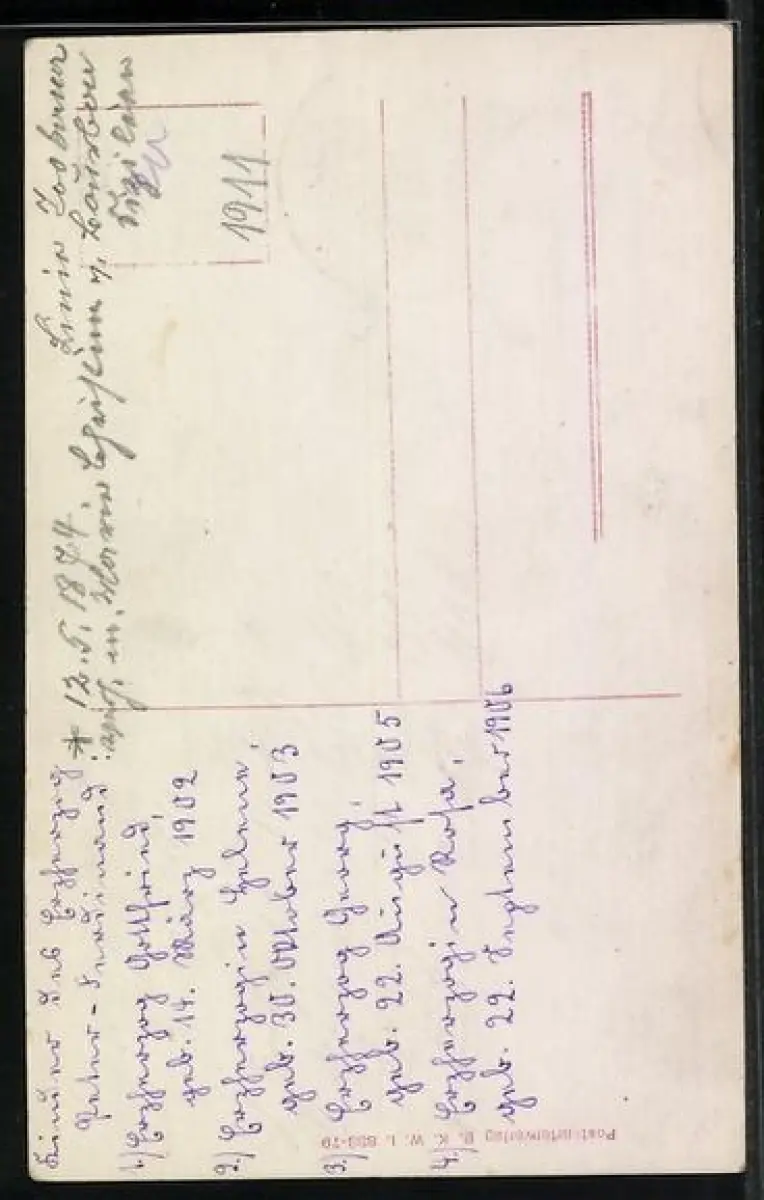 Kinder des Erzherzog
Peter-Ferdinand
1.) Erzherzog Gottfried,
geb. 14. März 1902
2.) Erzherzogin Helene,
geb. 30. Oktober 1903
3.) Erzherzog Georg,
geb. 22. August 1905
4.) Erzherzogin Rosa,
geb. 22. September 1906
* 12.5.1874.
m. Maria Christina v. Bourbon
Sizilien
1911
Postkartenverlag B. K. W. I. 888-79